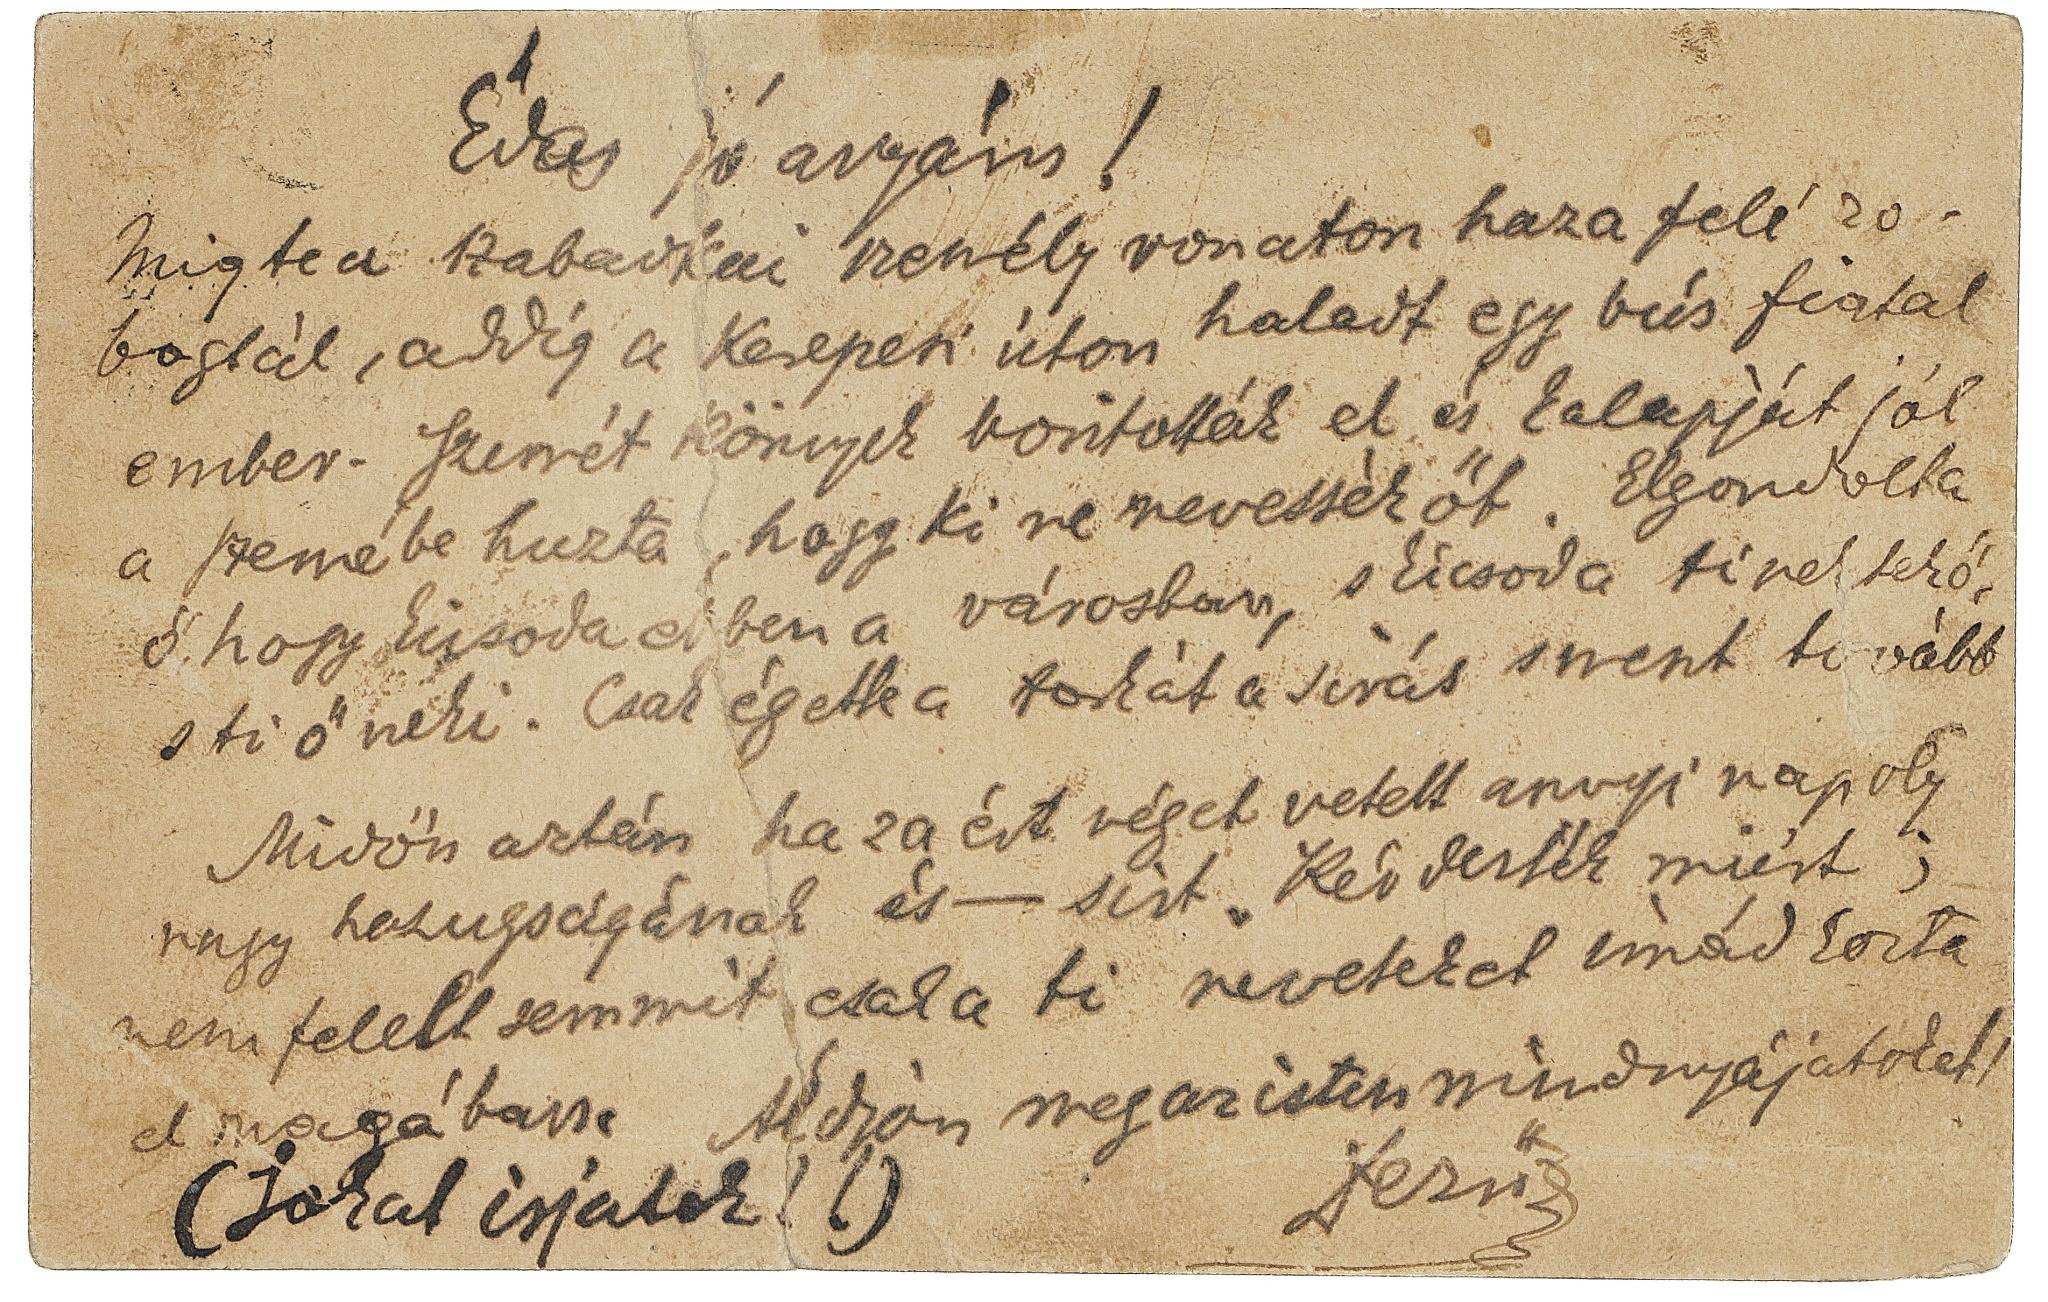 Édes jó anyám!
Mig te a szabadkai személy vonaton haza felé ro-
bogtál, addig a Kerepesi úton haladt egy bús fiatal
ember. Szemét könyek boritották el és kalapját jól
a szemébe huzta, hogy ki ne nevessék őt. Elgondolta
ő, hogy kicsoda ebben a városban, s kicsoda ti nektek ő,
s ti ő neki. Csak égette a torkát a sirás s ment tovább
Midőn aztán haza ért véget vetett annyi napoly
nagy hazugságának és — sirt. Kérdezték miért;
nem felelt semmit csak a ti neveteket imádkozta
el magában. Áldjon meg az isten mindnyájatokat!
(Sokat irjatok!!) Dezső